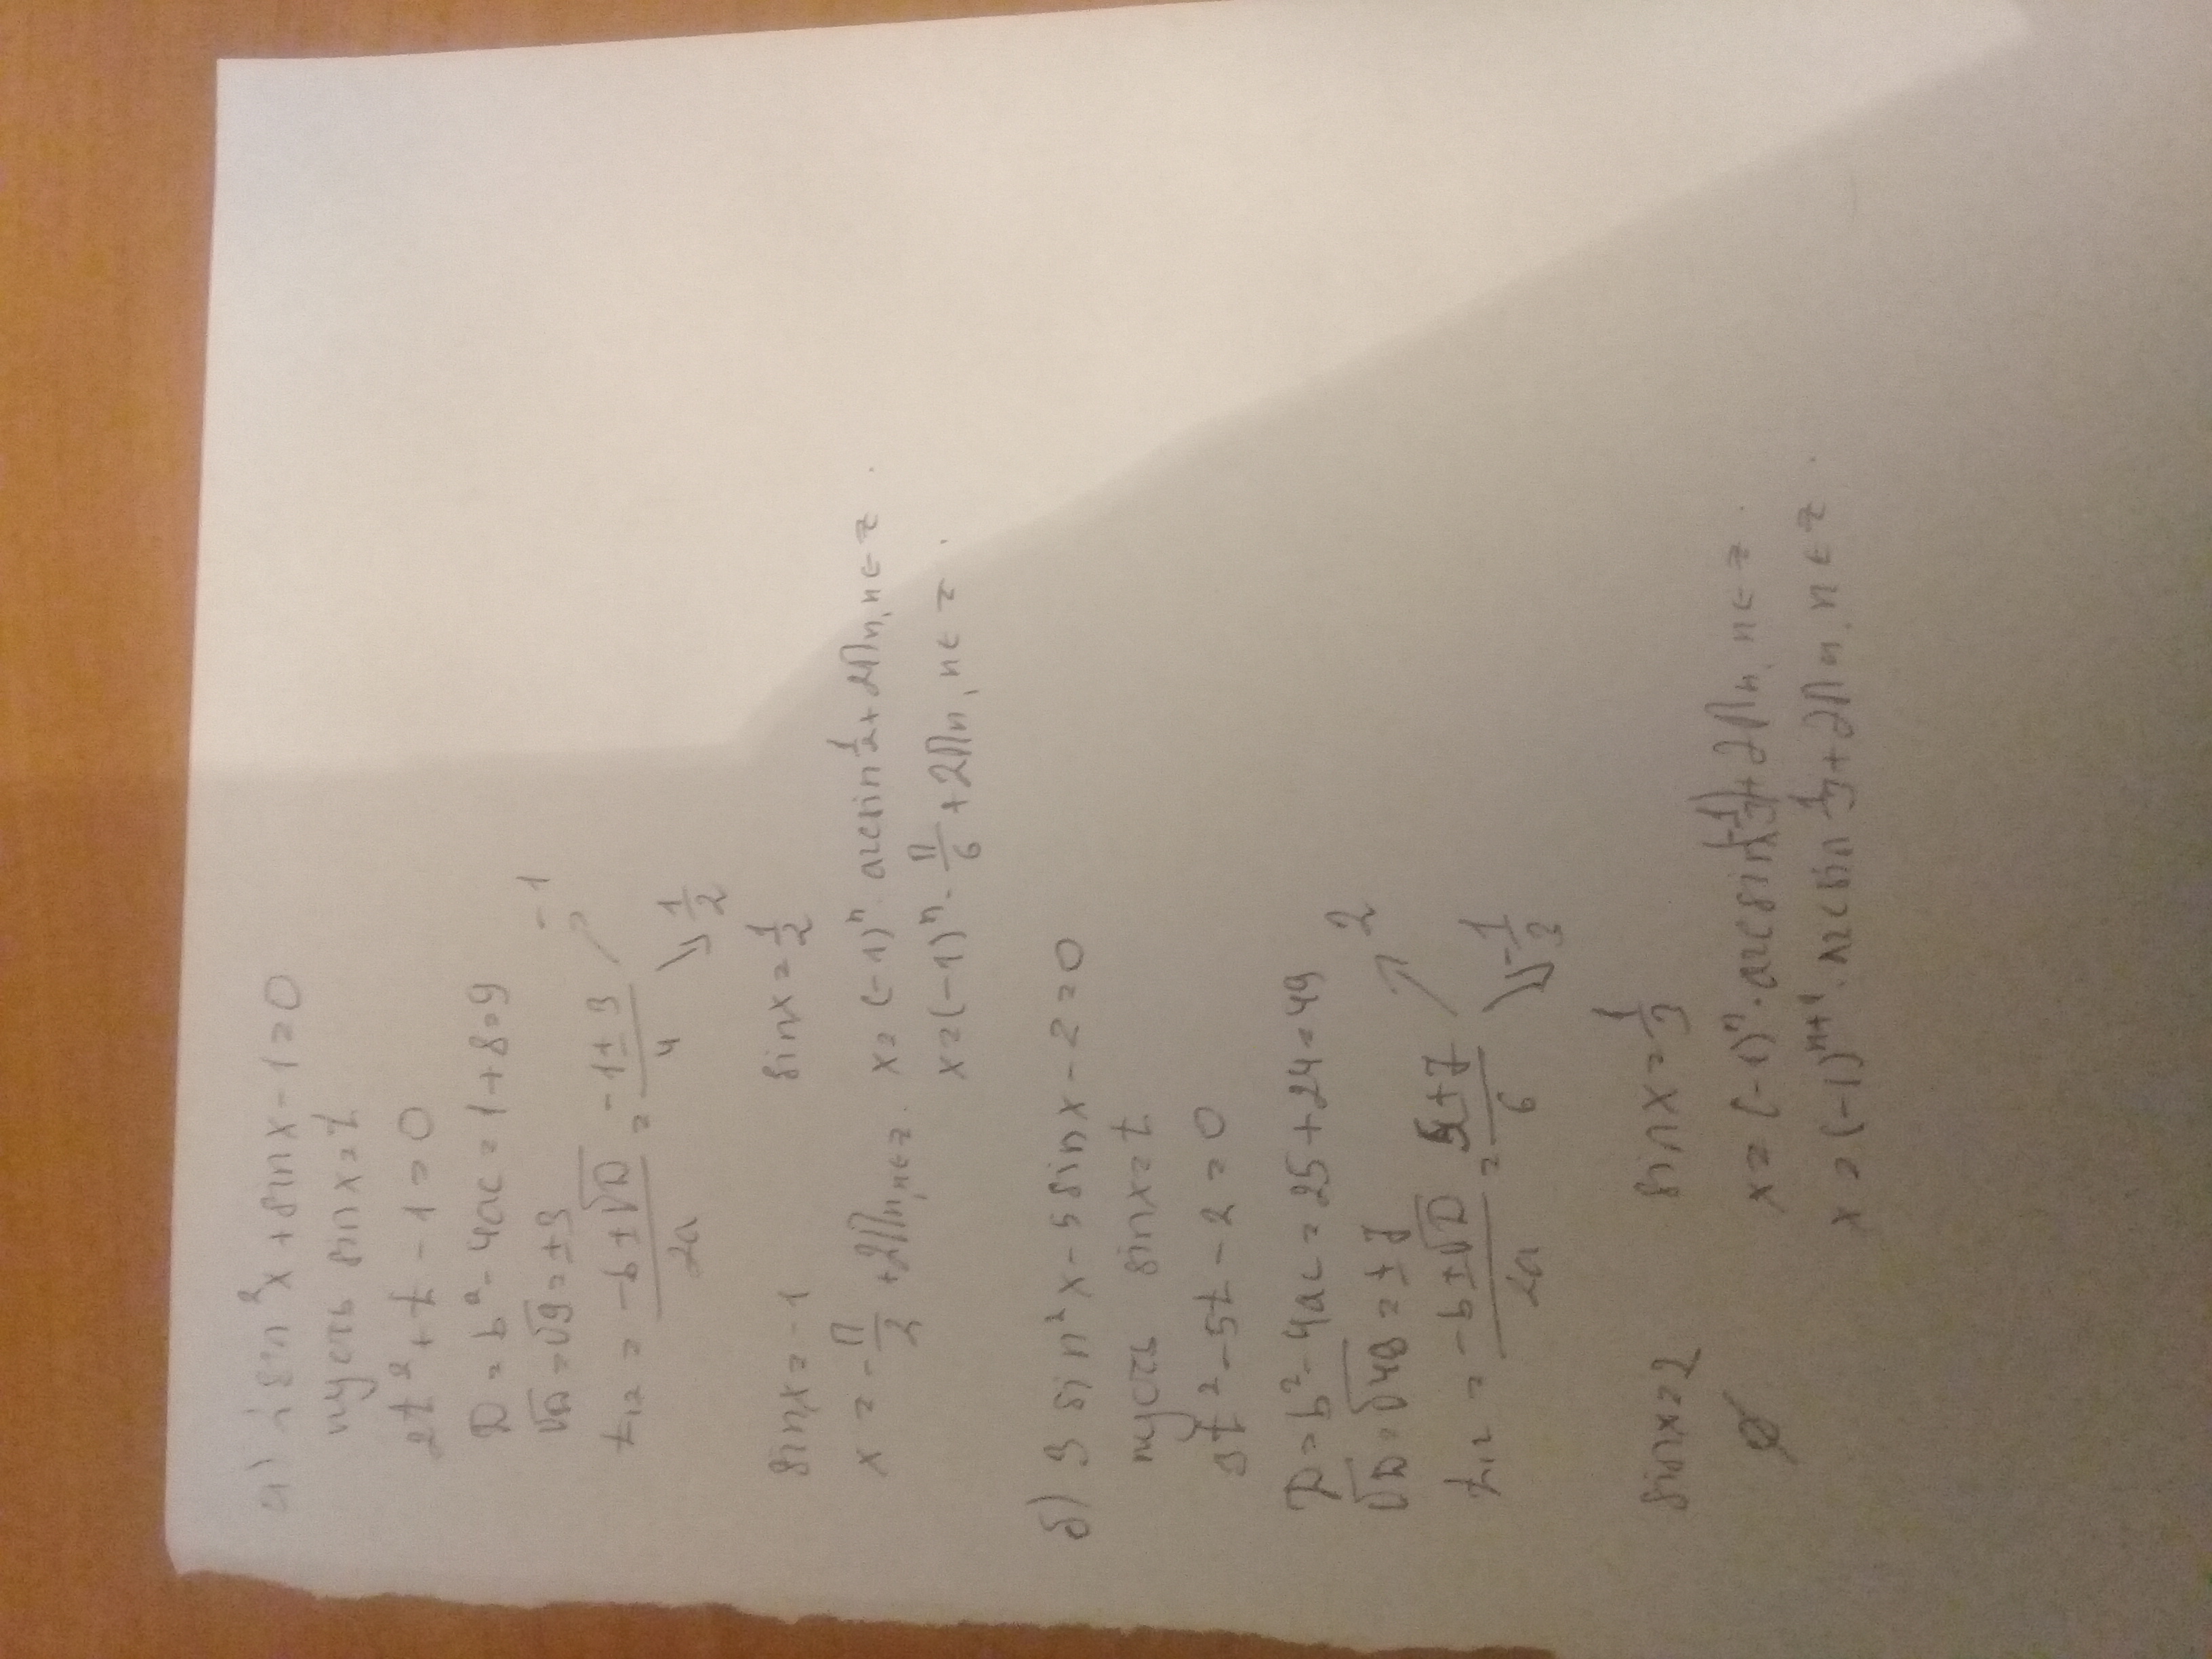 а) 2 sin²x + sin x - 1 = 0
пусть sin x = t
2t² + t - 1 = 0
D = b² - 4ac = 1 + 8 = 9
√D = √9 = ±3
t₁₂ = (-b ± √D)/2a = (-1 ± 3)/4 ↗ -1 ↘ 1/2
sin x = -1 sin x = 1/2
x = -П/2 + 2Пn, n∈z. x = (-1)ⁿ · arcsin 1/2 + 2Пn, n∈z.
x = (-1)ⁿ · П/6 + 2Пn, n∈z.
б) 3 sin²x - 5 sin x - 2 = 0
пусть sin x = t
3t² - 5t - 2 = 0
D = b² - 4ac = 25 + 24 = 49
√D = √49 = ±7
t₁₂ = (-b ± √D)/2a = (5 ± 7)/6 ↗ 2 ↘ -1/3
sin x = 2 sin x = -1/3
∅ x = (-1)ⁿ · arcsin(-1/3) + 2Пn, n∈z.
x = (-1)ⁿ⁺¹ · arcsin 1/3 + 2Пn, n∈z.